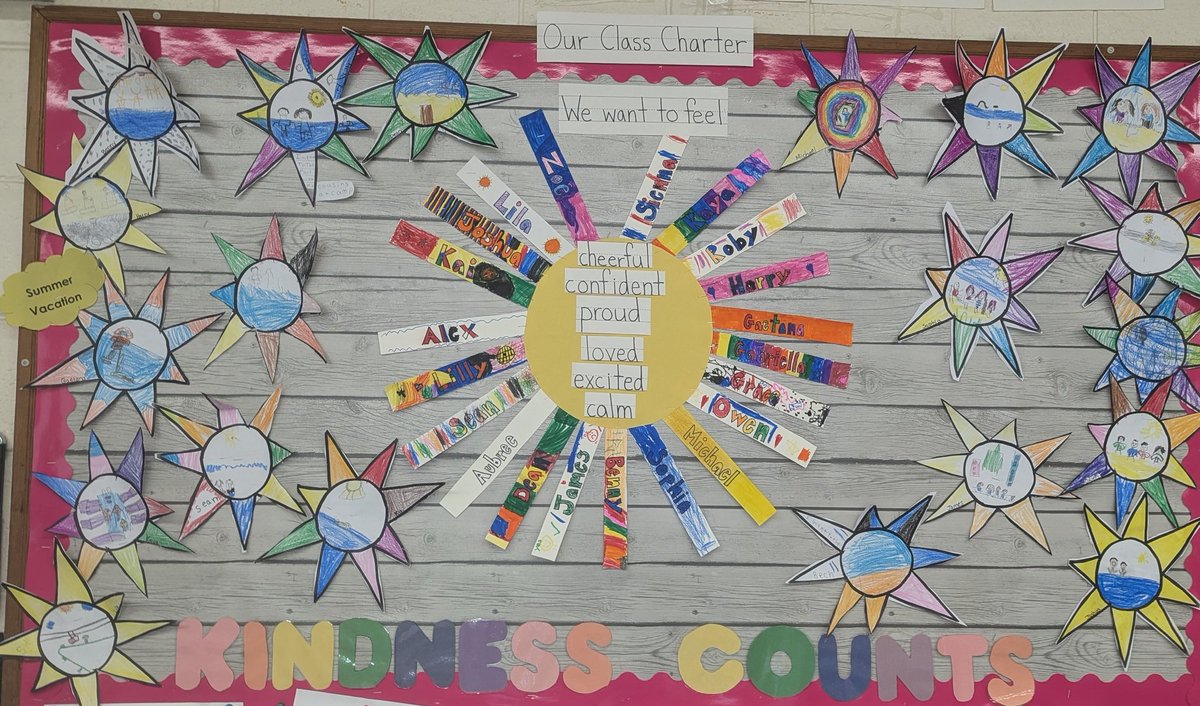 Our Class Charter
We want to feel
cheerful
confident
proud
loved
excited
calm
Zoë
Sienna
Kaya
Roby
Harry
Gaetana
Gabriella
Grace
Owen
Michael
Sophia
Benny
James
Dean
Aubree
Sean
Lilly
Alex
Kai
Joshua
Lila
Summer
Vacation
Michael
Sean
KINDNESS COUNTS